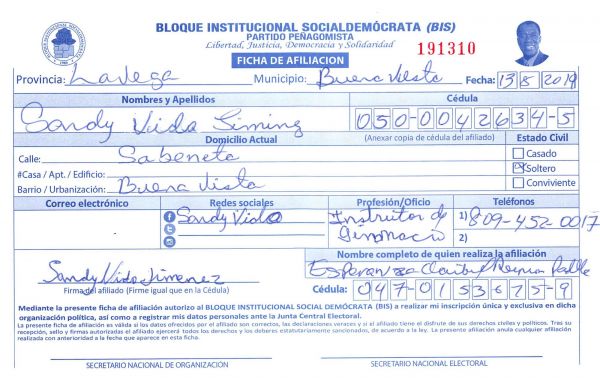 BLOQUE INSTITUCIONAL SOCIALDEMÓCRATA (BIS)
PARTIDO PEÑAGOMISTA
Libertad, Justicia, Democracia y Solidaridad
191310
FICHA DE AFILIACION
Provincia: La Vega Municipio: Buena Vista Fecha: 13 8 2019
Nombres y Apellidos Cédula
Sandy Vido Jiminez 050-0042634-5
(Anexar copia de cédula del afiliado)
Domicilio Actual Estado Civil
Calle: Sabeneta Casado
#Casa / Apt. / Edificio: Soltero
Barrio / Urbanización: Buena Vista Conviviente
Correo electrónico Redes sociales Profesión/Oficio Teléfonos
Sandy Vido Instrutor de 1) 809-452-0017
Gimnacio 2)
Nombre completo de quien realiza la afiliación
Sandy Vido Jimenez Esperanza
Firma del afiliado (Firme igual que en la Cédula) Cédula: 047-0153675-9
Mediante la presente ficha de afiliación autorizo al BLOQUE INSTITUCIONAL SOCIAL DEMÓCRATA (BIS) a realizar mi inscripción única y exclusiva en dicha
organización política, así como a registrar mis datos personales ante la Junta Central Electoral.
La presente ficha de afiliación es válida si los datos ofrecidos por el afiliado son correctos, las declaraciones veraces y si el afiliado tiene el disfrute de sus derechos civiles y políticos. Tras su
recepción, sello y firmas autorizadas el afiliado ejercerá todos los derechos y los deberes estatutariamente sancionados, de acuerdo a la ley. La presente afiliación anula cualquier afiliación
realizada con anterioridad a la fecha que aparece en esta ficha.
SECRETARIO NACIONAL DE ORGANIZACIÓN SECRETARIO NACIONAL ELECTORAL